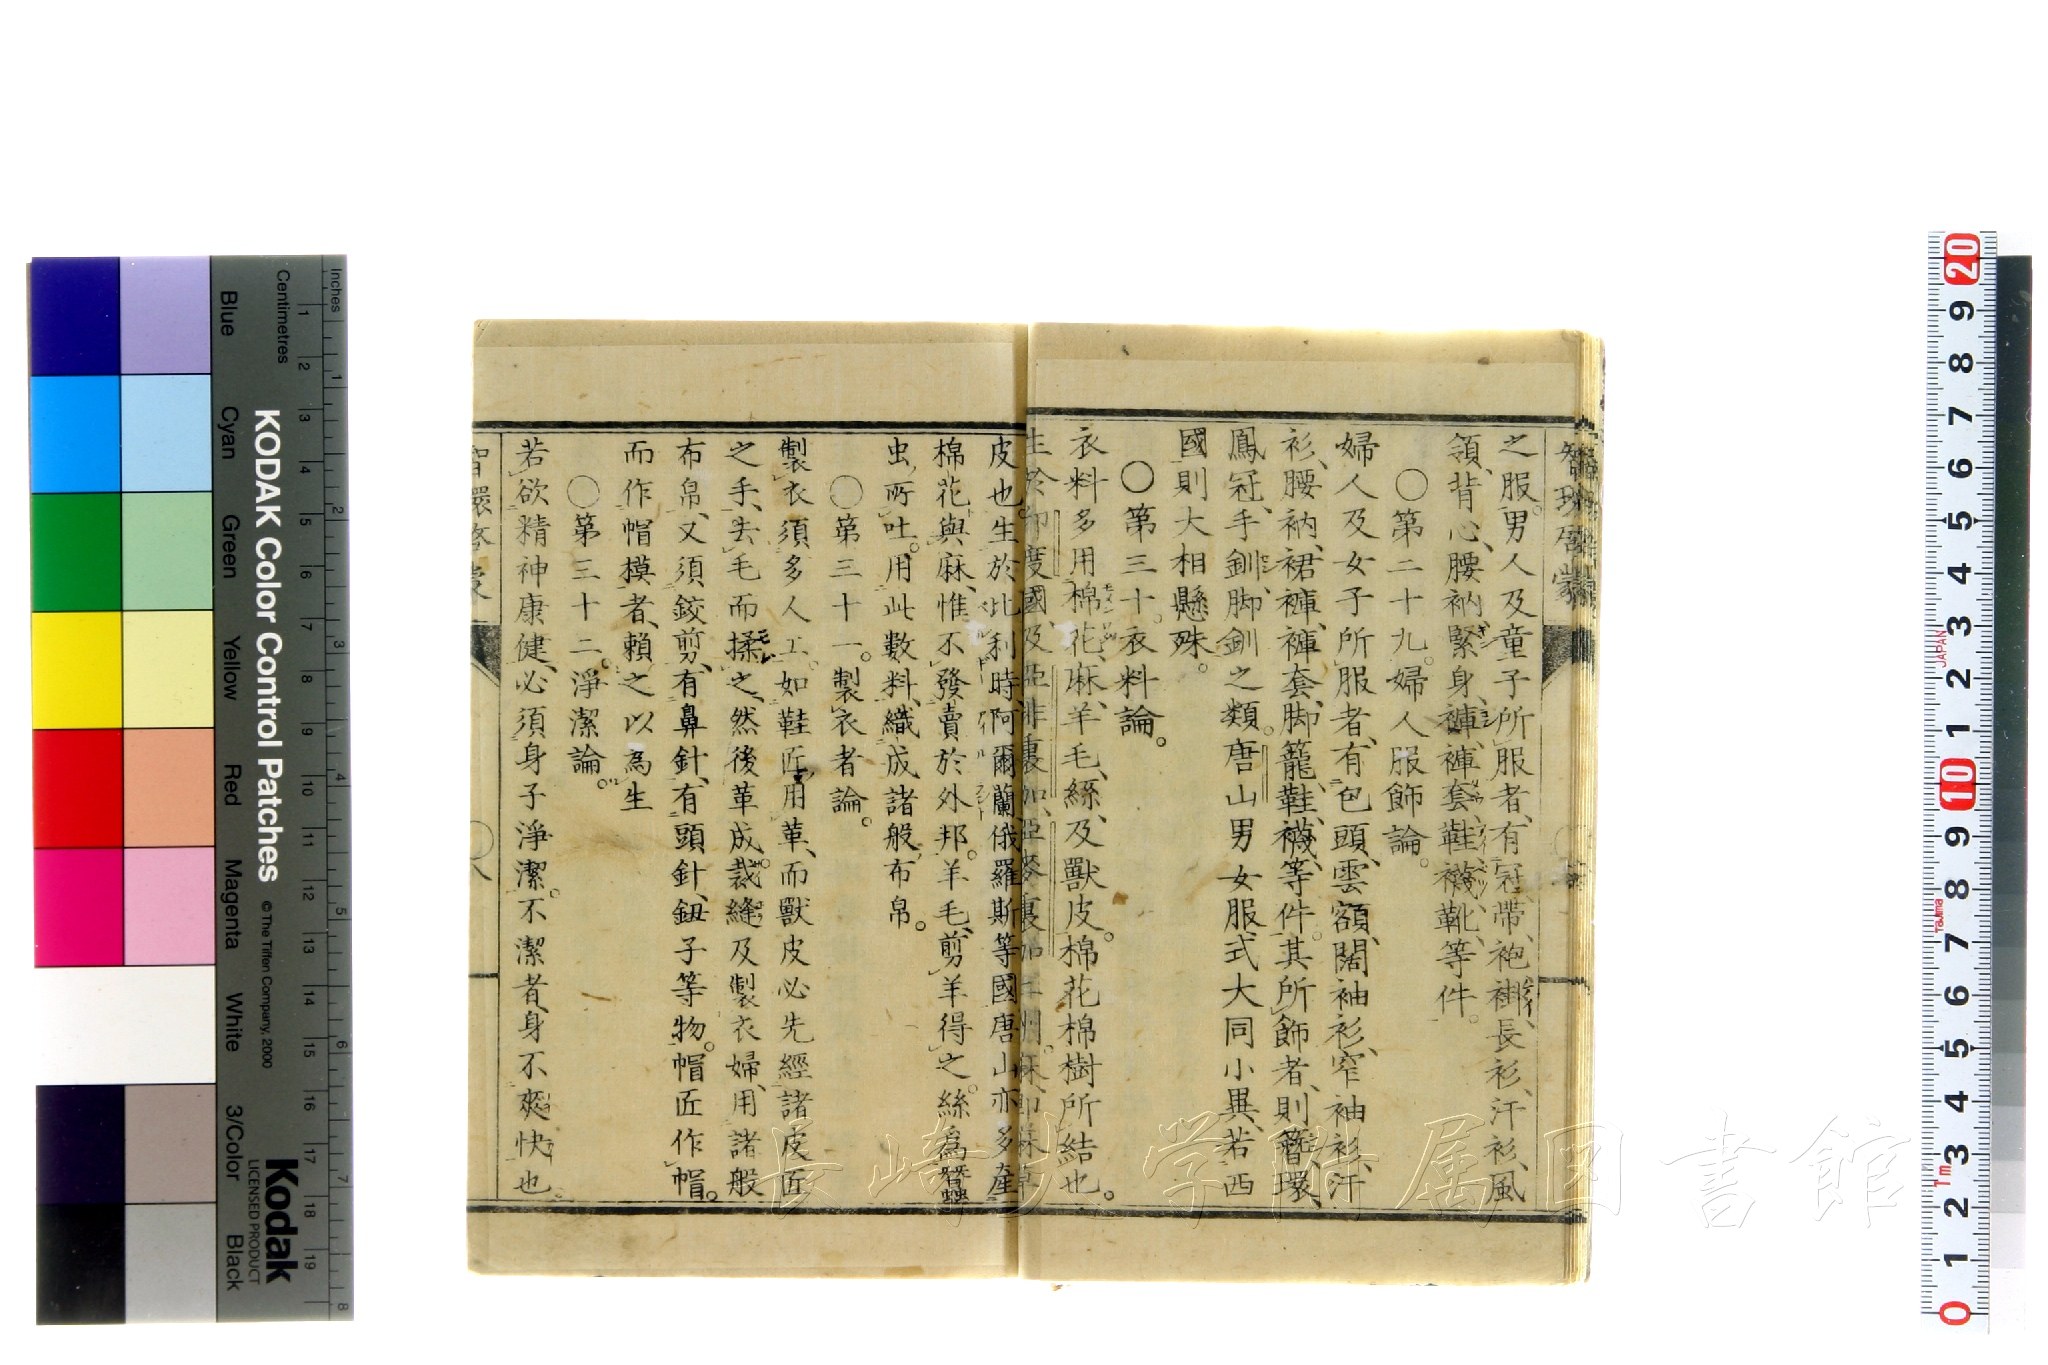 智環啓蒙
之服。男人及童子所服者、有冠、帶、袍、褂、長衫、汗衫、風
領、背心、腰衲、緊身、褲、褲套、鞋、襪、靴、等件。
〇第二十九。婦人服飾論。
婦人及女子所服者、有包頭、雲額、闊袖衫、窄袖衫、汗
衫、腰衲、裙、褲、褲套、脚籠、鞋、襪、等件。其所飾者、則簪、環、
鳳冠、手釧、脚釧之類。唐山男女服式大同小異、若西
國則大相懸殊。
〇第三十。衣料論。
衣料多用棉花、麻、羊毛、絲、及獸皮。棉花棉樹所結也。
生於印度國、及亞非裏加、亞麥裏加二州。麻、即麻草
皮也。生於比利時、阿爾蘭、俄羅斯等國、唐山亦多產
棉花與麻、惟不發賣於外邦。羊毛、剪羊得之。絲爲蠶
虫所吐。用此數料、織成諸般布帛。
〇第三十一。製衣者論。
製衣須多人工。如鞋匠用革、而獸皮必先經諸皮匠
之手、去毛而揉之、然後革成。裁縫及製衣婦、用諸般
布帛、又須鉸剪、有鼻針、有頭針、鈕子等物。帽匠作帽。
而作帽模者、賴之以為生
〇第三十二。淨潔論。
若欲精神康健、必須身子淨潔。不潔者、身不爽快也。
智環啓蒙
長崎大学附属図書館
KODAK Color Control Patches
© The Tiffen Company, 2000
Kodak
LICENSED PRODUCT
Inches
Centimetres
Blue
Cyan
Green
Yellow
Red
Magenta
White
3/Color
Black
1 2 3 4 5 6 7 8 9 10 11 12 13 14 15 16 17 18 19
1 2 3 4 5 6 7 8
20 9 8 7 6 5 4 3 2 1 10 9 8 7 6 5 4 3 2 1 0
JAPAN
Tajima